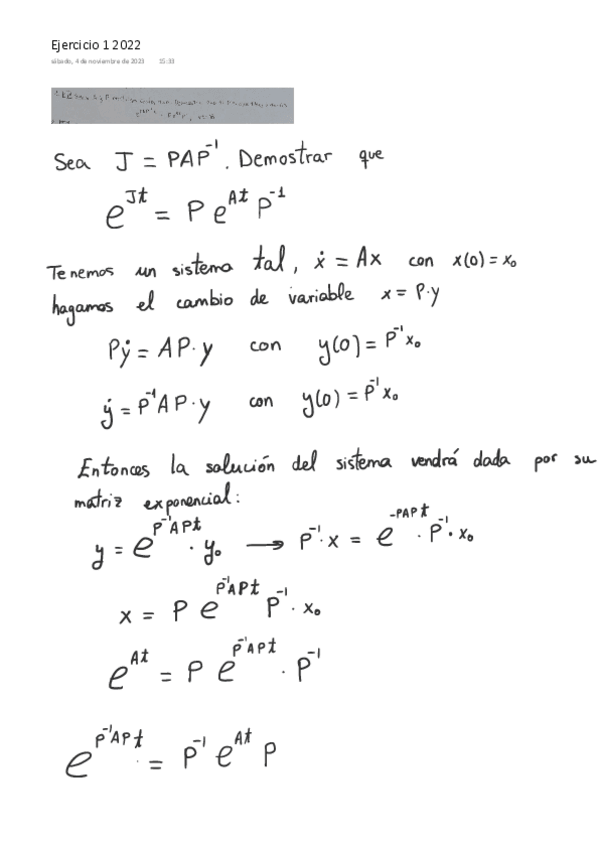 Ejercicio 1 2022
sábado, 4 de noviembre de 2023 15:33
Sea J = PAP⁻¹. Demostrar que
e^{Jt} = P e^{At} P⁻¹
Tenemos un sistema tal, ẋ = Ax con x(0) = x₀
hagamos el cambio de variable x = P·y
Pẏ = AP·y con y(0) = P⁻¹x₀
ẏ = P⁻¹AP·y con y(0) = P⁻¹x₀
Entonces la solución del sistema vendrá dada por su
matriz exponencial:
y = e^{P⁻¹APt} · y₀ → P⁻¹·x = e^{-PAPt} · P⁻¹·x₀
x = P e^{P⁻¹APt} P⁻¹·x₀
e^{At} = P e^{P⁻¹APt} · P⁻¹
e^{P⁻¹APt} = P⁻¹ e^{At} P